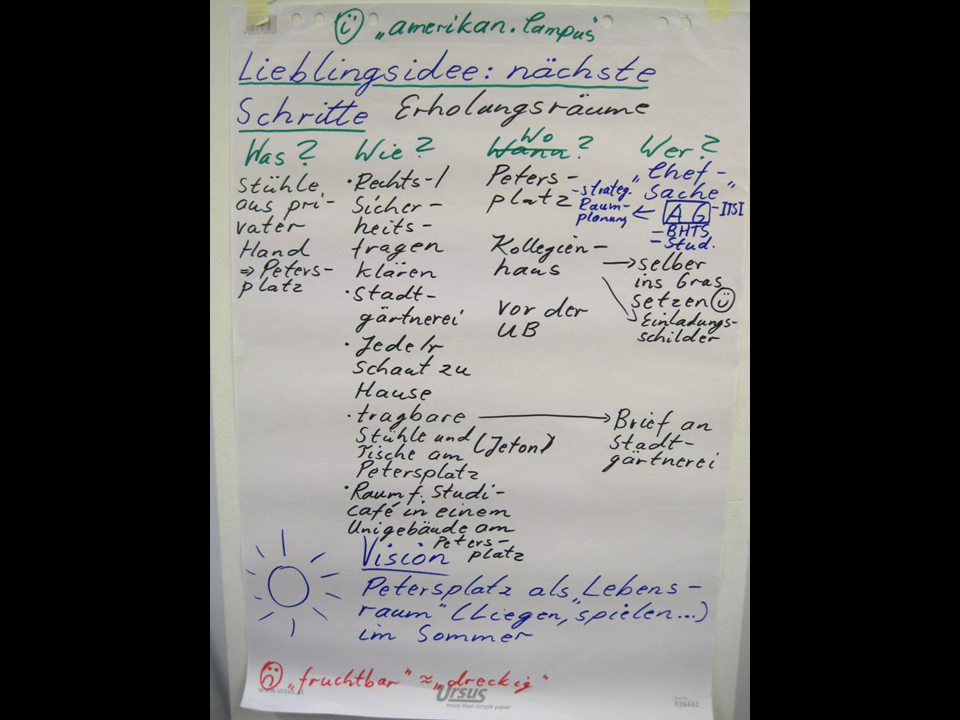 „amerikan. Campus"
Lieblingsidee: nächste
Schritte Erholungsräume
Was?
Stühle
aus pri-
vater
Hand
⇒ Peters-
platz
Wie?
· Rechts-/
Sicher-
heits-
fragen
klären
· Stadt-
gärtnerei
· Jede/r
schaut zu
Hause
· tragbare
Stühle und (Jeton)
Tische am
Petersplatz
· Raum f. Studi-
café in einem
Unigebäude am
Peters-
platz
Wo
Wann?
Peters-
platz
Kollegien-
haus
vor der
UB
Wer?
„Chef-
sache"
- strateg.
Raum-
planung
← AG - ITSI
- BHTS
- Stud.
→ selber
ins Gras
setzen
Einladungs-
schilder
→ Brief an
Stadt-
gärtnerei
Vision
Petersplatz als „Lebens-
raum" (Liegen, spielen...)
im Sommer
„fruchtbar" ≈ „dreckig"
Ursus
more than simple paper